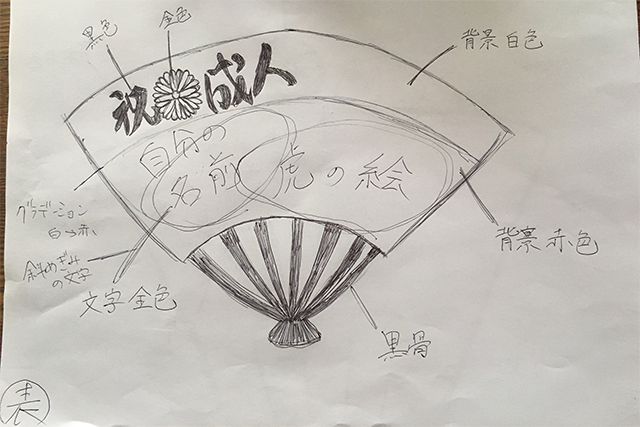 黒色
金色
背景白色
祝 成人
自分の
名前
虎の絵
グラデーション
白→赤
斜めぎみ
の文字
文字金色
背景赤色
黒骨
表